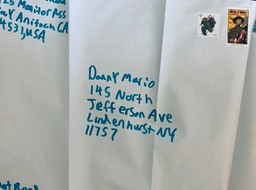 Monitor Pass
Antioch CA
4531, USA
Danny Mario
145 North
Jefferson Ave
Lindenhurst NY
11757